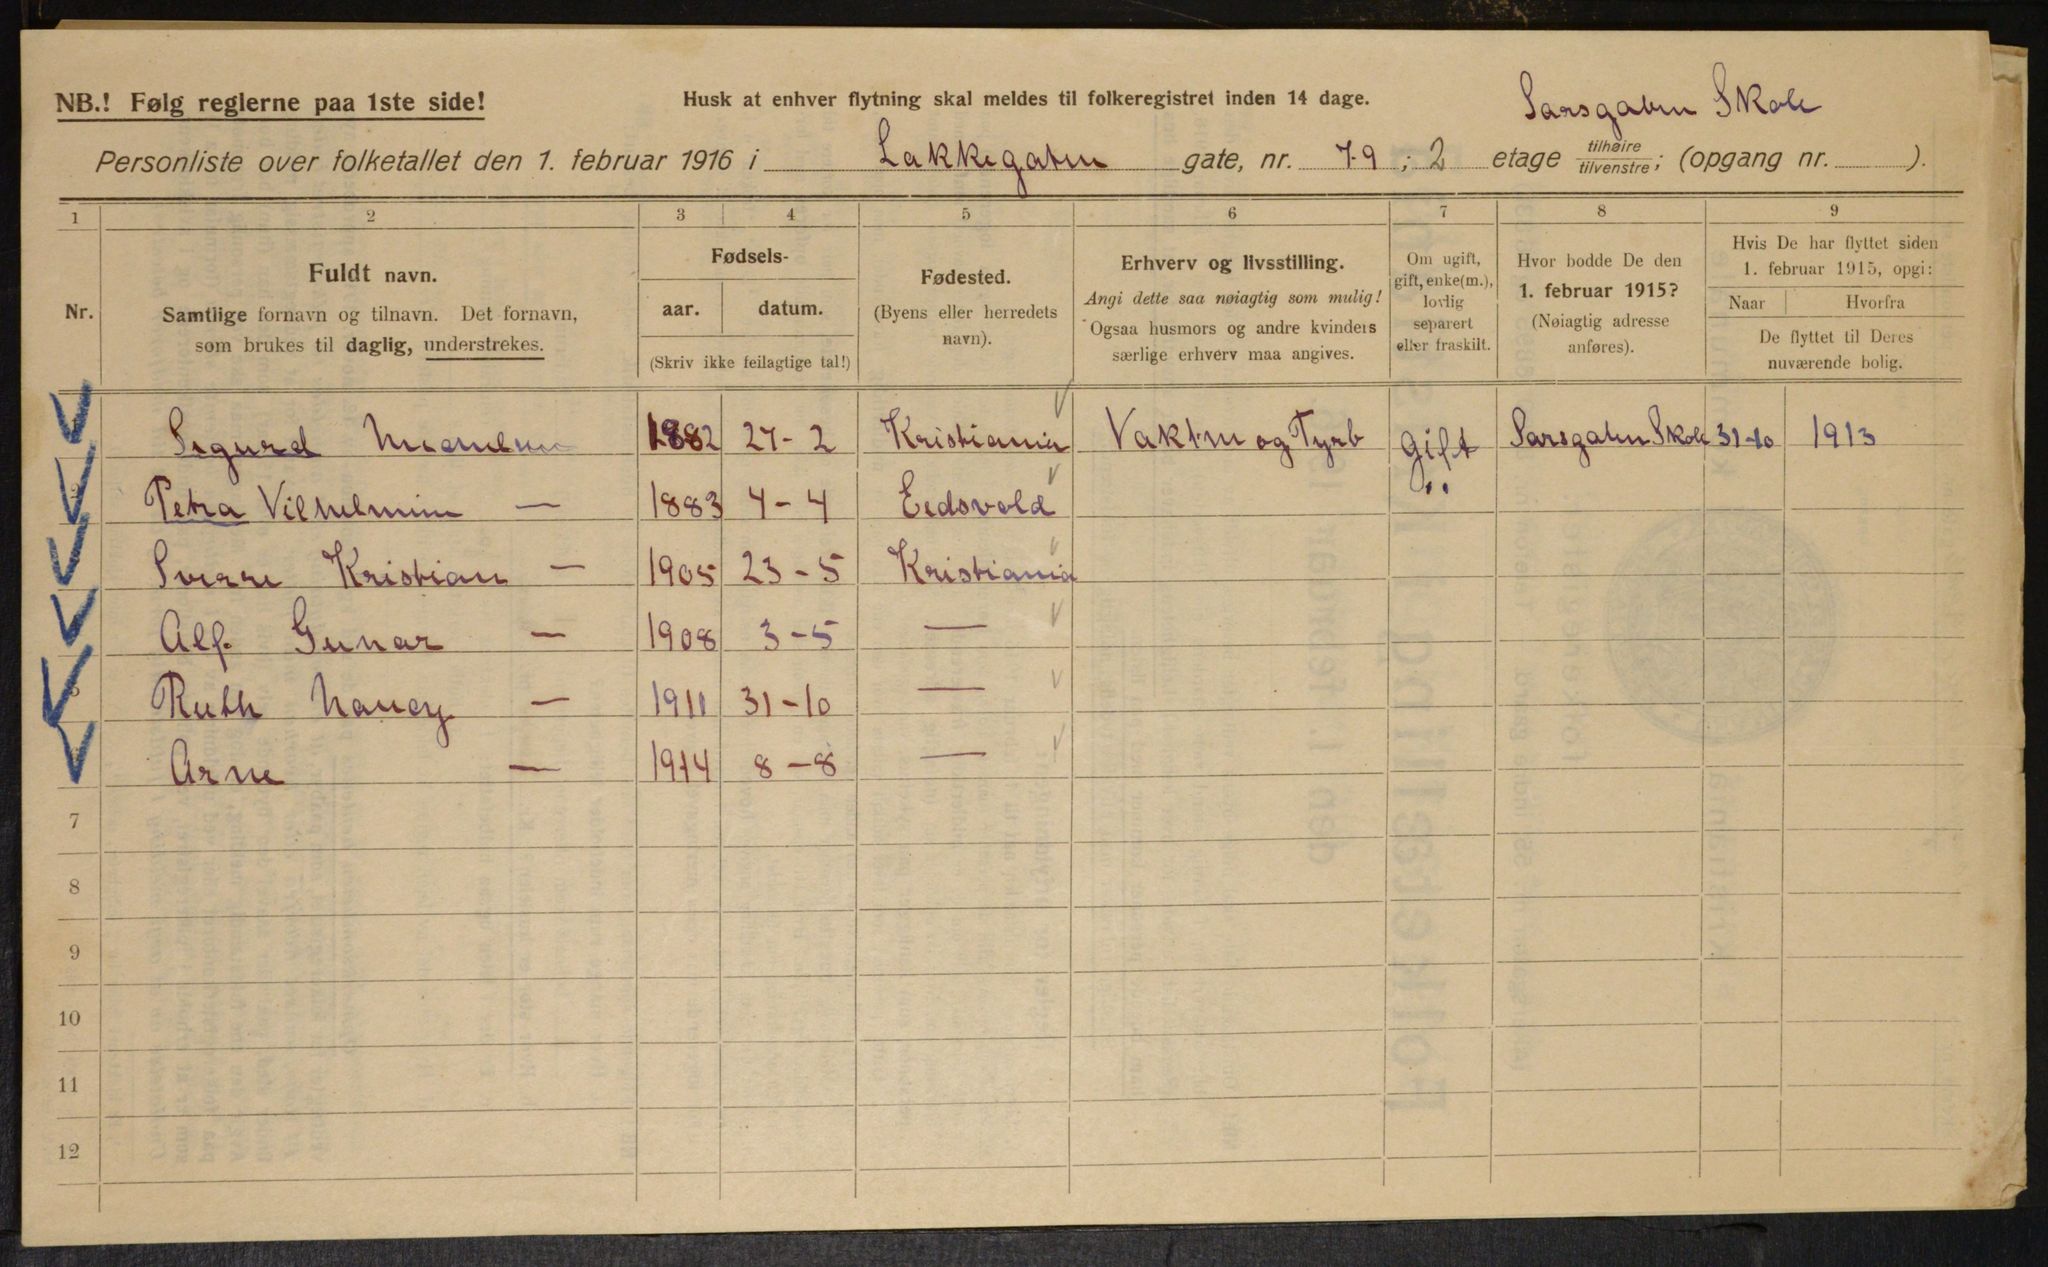 NB.! Følg reglerne paa 1ste side!
Husk at enhver flytning skal meldes til folkeregistret inden 14 dage.
Sarsgaten Skole
Personliste over folketallet den 1. februar 1916 i Lakkegaten gate, nr. 79 ; 2 etage tilhøire/tilvenstre; (opgang nr. ).
1 2 3 4 5 6 7 8 9
Nr.
Fuldt navn.
Samtlige fornavn og tilnavn. Det fornavn,
som brukes til daglig, understrekes.
Fødsels-
aar. datum.
(Skriv ikke feilagtige tal!)
Fødested.
(Byens eller herredets
navn).
Erhverv og livsstilling.
Angi dette saa nøiagtig som mulig!
Ogsaa husmors og andre kvinders
særlige erhverv maa angives.
Om ugift,
gift, enke(m.),
lovlig
separert
eller fraskilt.
Hvor bodde De den
1. februar 1915?
(Nøiagtig adresse
anføres).
Hvis De har flyttet siden
1. februar 1915, opgi:
Naar Hvorfra
De flyttet til Deres
nuværende bolig.
Sigurd 1882 27-2 Kristiania Vaktm og Fyrb Gift Sarsgaten Skole 31-10 1913
Petra Vilhelmine — 1883 4-4 Eidsvold "
Sverre Kristian — 1905 23-5 Kristiania
Alf Gunar — 1908 3-5 —
Ruth Nancy — 1911 31-10 —
Arne — 1914 8-8 —
7
8
9
10
11
12